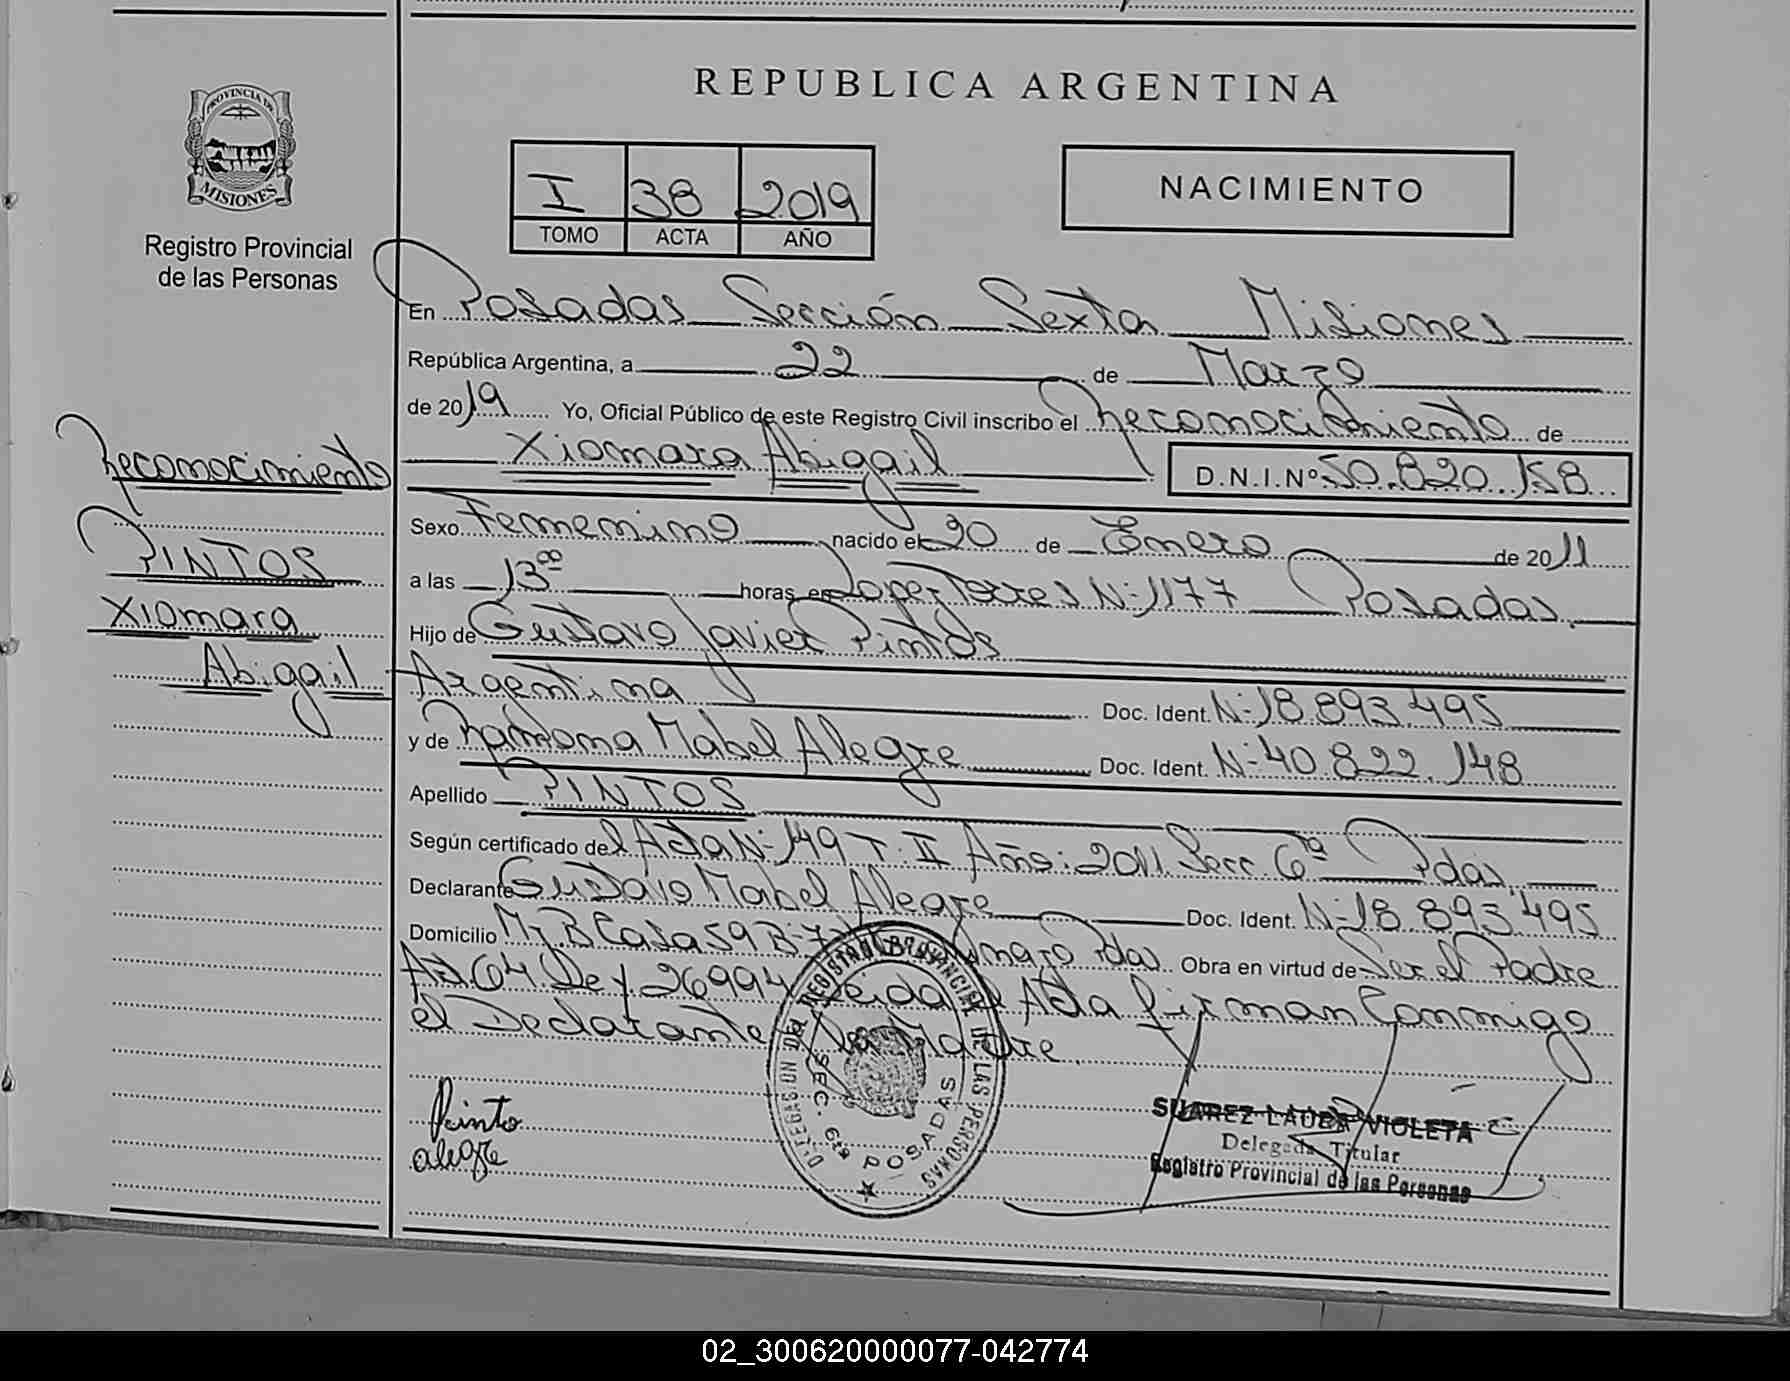 REPUBLICA ARGENTINA
PROVINCIA DE
MISIONES
Registro Provincial
de las Personas
I 38 2019
TOMO ACTA AÑO
NACIMIENTO
En Posadas Sección Sexta Misiones
República Argentina, a 22 de Marzo
de 2019 Yo, Oficial Público de este Registro Civil inscribo el Reconocimiento de
Xiomara Abigail D.N.I.Nº 50.820.158
Reconocimiento
PINTOS
Xiomara
Abigail
Sexo Femenino nacido el 20 de Enero de 2011
a las 13⁰⁰ horas en Lopez Torres N-1177 Posadas
Hijo de Gustavo Javier Pintos
Argentina Doc. Ident. N-18.893.495
y de Ramona Mabel Alegre Doc. Ident. N-40.822.148
Apellido PINTOS
Según certificado del Acta N-149 T. II Año: 2011 Secc. 6ta Pdas
Declarante Gustavo Mabel Alegre Doc. Ident. N-18.893.495
Domicilio Mz B Casa 59 B- Pdas. Obra en virtud de Ser el Padre
Art 64 Ley 26994 Leida el Acta firman Conmigo
el Declarante y la Madre
Pinto
alegre
DELEGACION DEL REGISTRO PROVINCIAL DE LAS PERSONAS
SEC. 6ta POSADAS
SUAREZ LAURA VIOLETA
Delegada Titular
Registro Provincial de las Personas
02_300620000077-042774